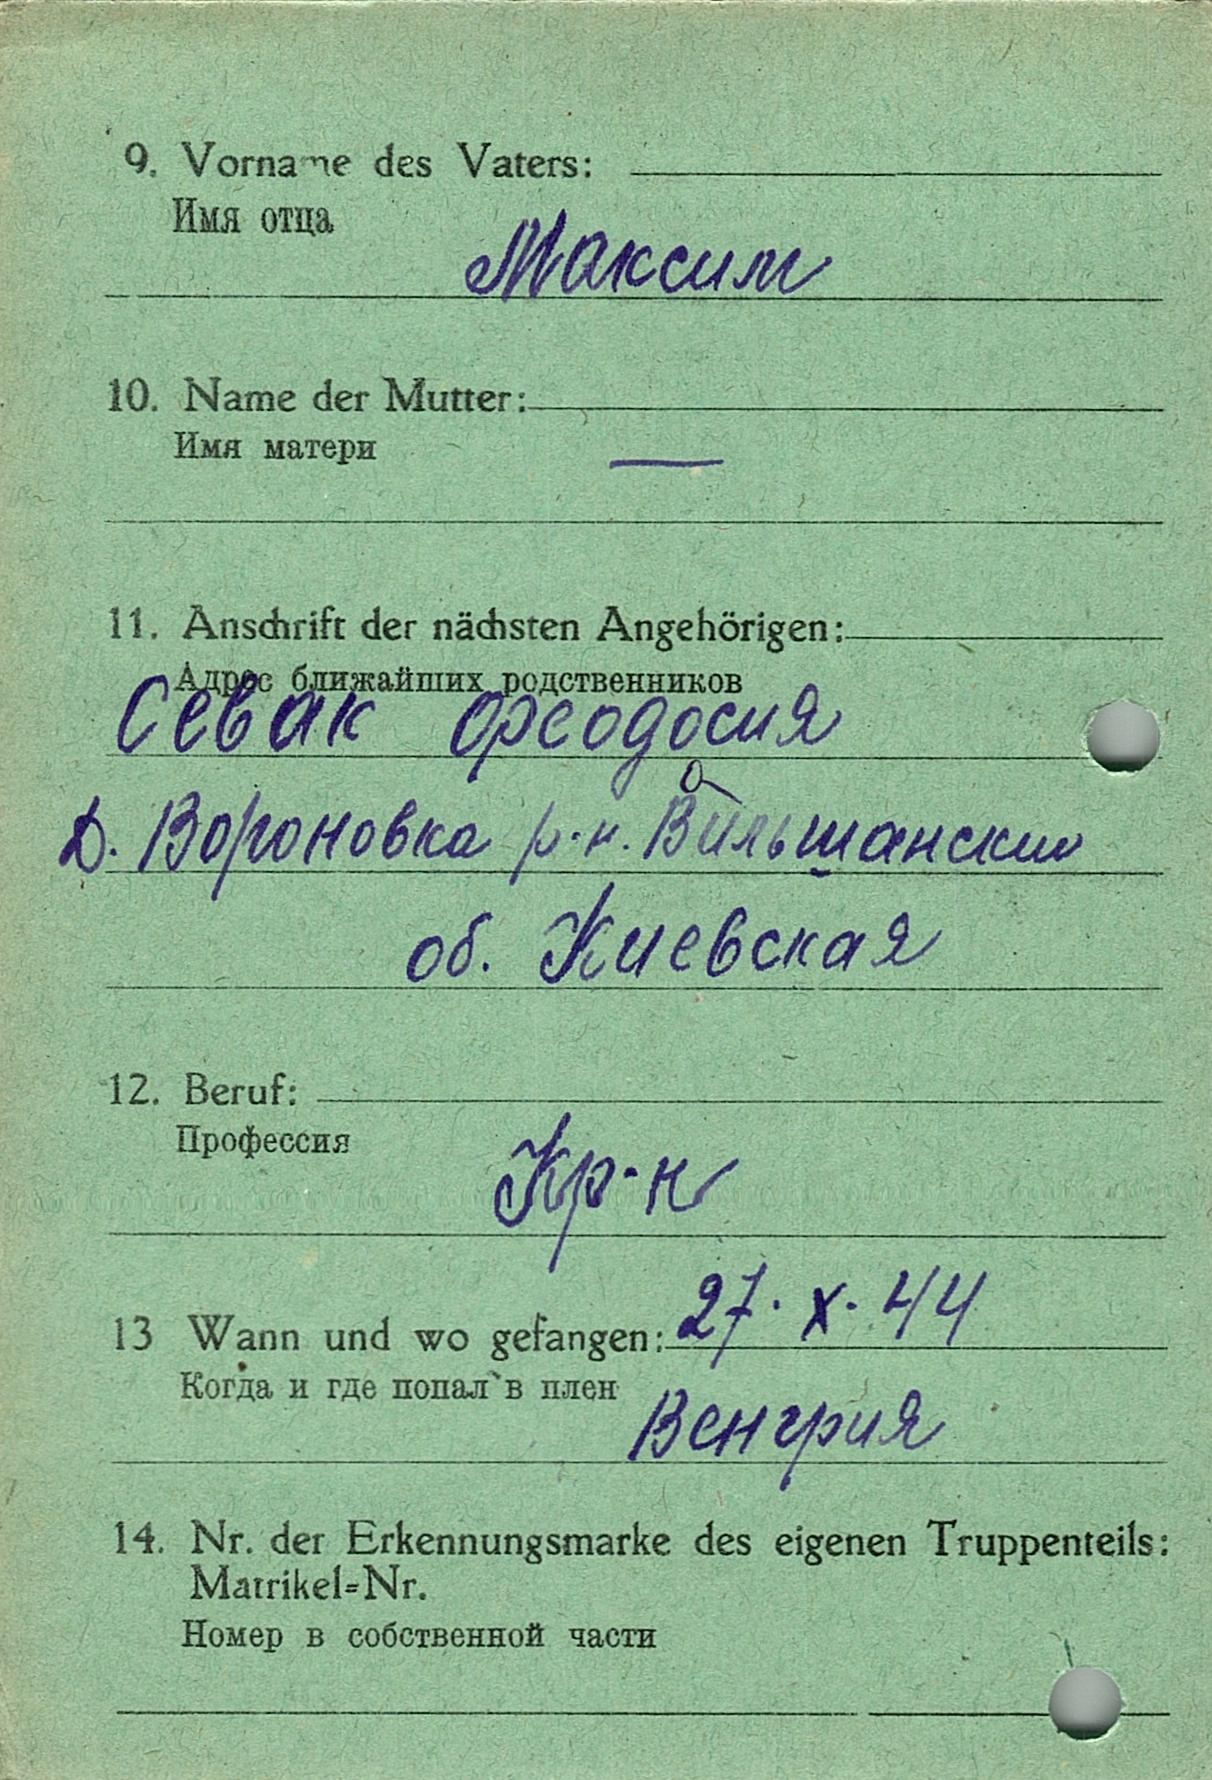 9. Vorname des Vaters:
Имя отца
Максим
10. Name der Mutter:
Имя матери
—
11. Anschrift der nächsten Angehörigen:
Адрес ближайших родственников
Севак Феодосия
Д. Вороновка р-н. Вильшанский
об. Киевская
12. Beruf:
Профессия
Кр-н
13 Wann und wo gefangen: 27. X. 44
Когда и где попал в плен
Венгрия
14. Nr. der Erkennungsmarke des eigenen Truppenteils:
Matrikel=Nr.
Номер в собственной части